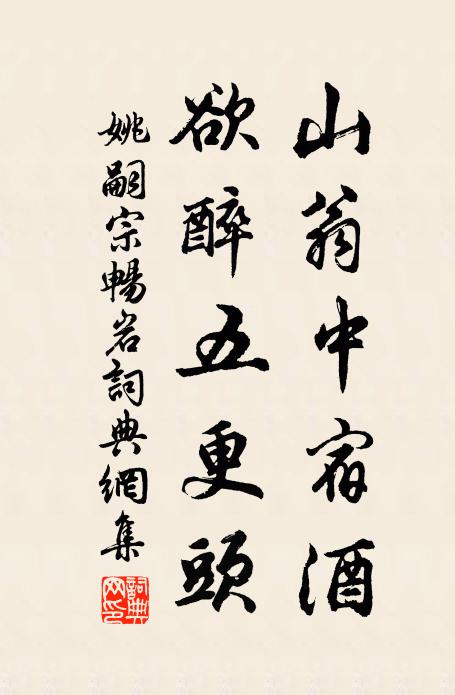 山翁中宿酒
欲醉五更頭
姚嗣宗暢岩詞典網集
詞典網印